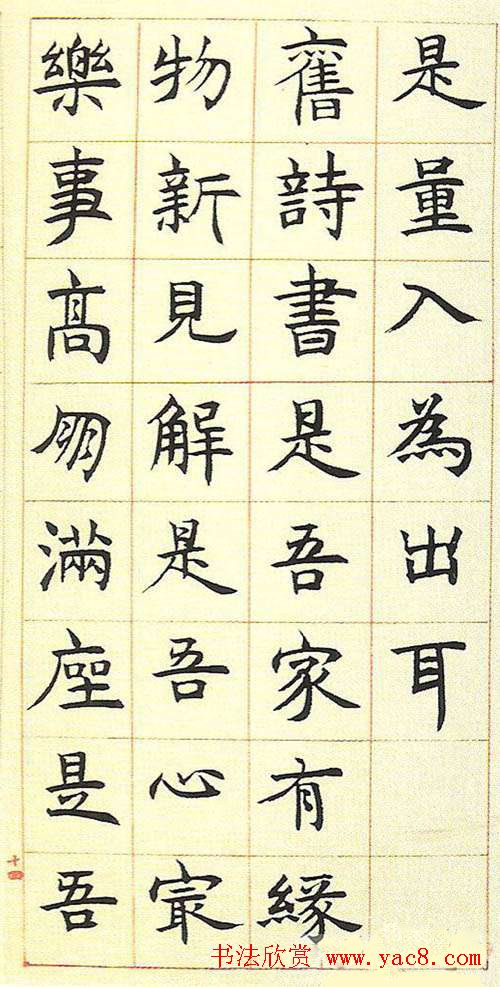 是量入為出耳
舊詩書是吾家有緣
物新見解是吾心㝡
樂事高朋滿座是吾
十四
书法欣赏 www.yac8.com